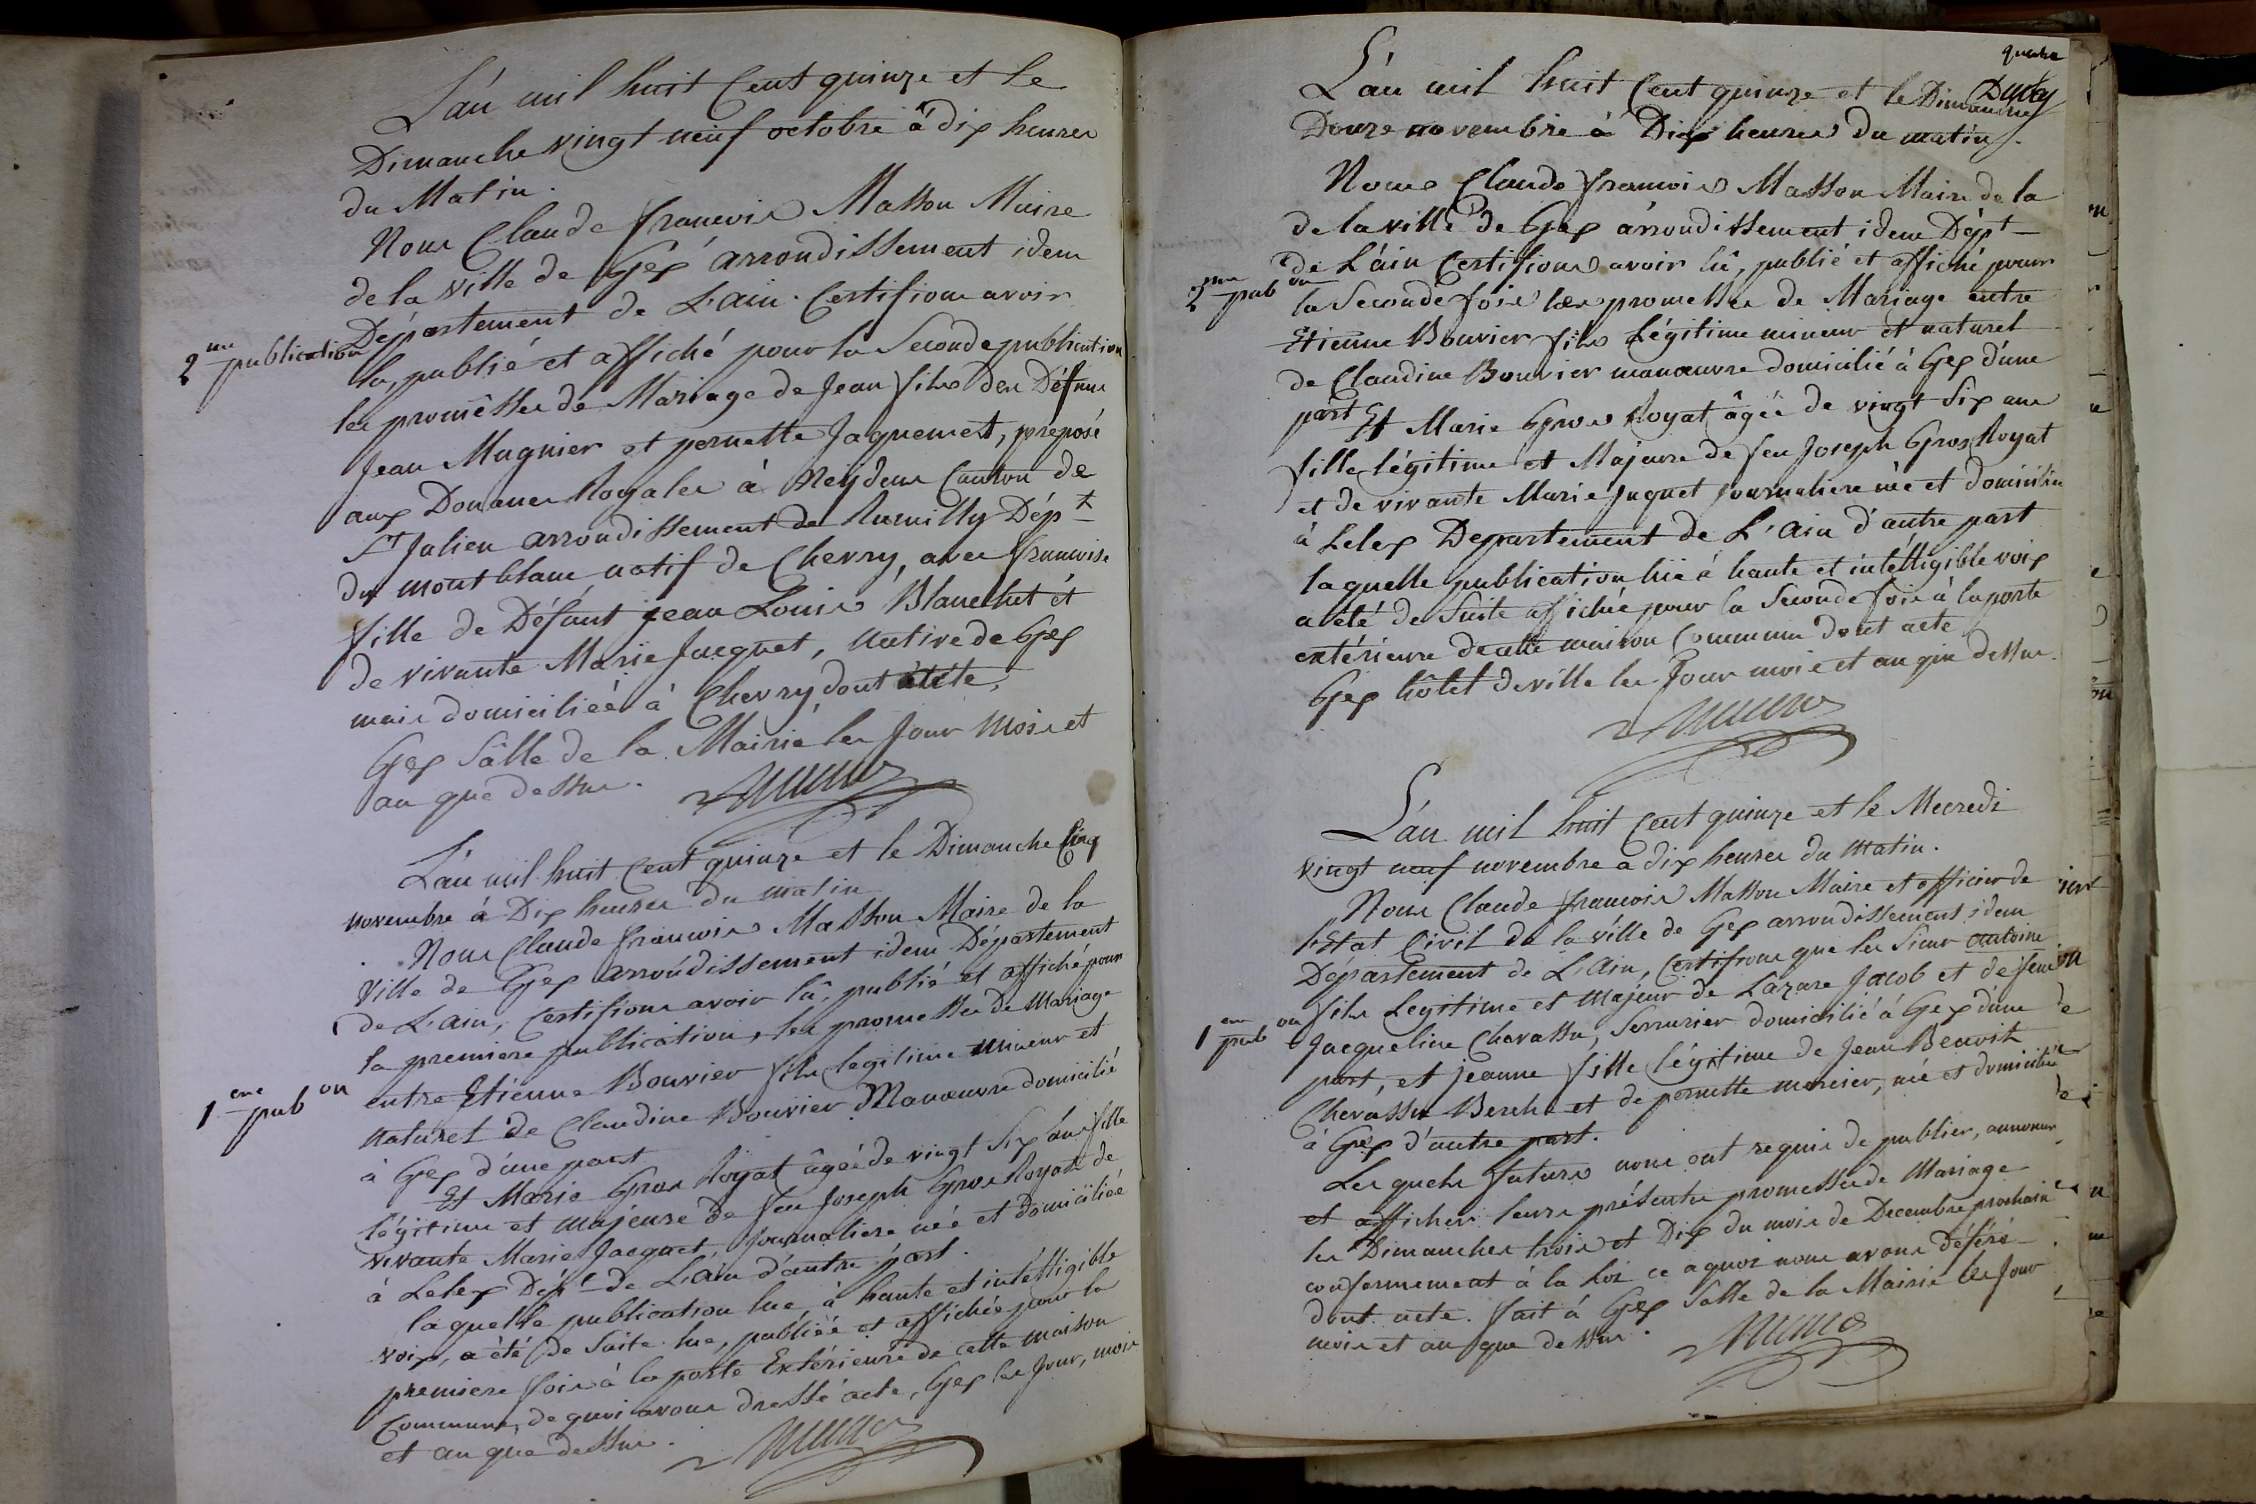 L'an mil huit Cent quinze et le
Dimanche vingt neuf octobre à dix heures
du Matin.
Nous Claude francois Masson Maire
de la ville de Gex arrondissement idem
Département de L'ain. Certifions avoir
2me publication
lu, publié et affiché pour la Seconde publication
les promesses de Mariage de Jean fils des Défunts
Jean Mugnier et pernette Jaquemet, préposé
aux Douanes Royales à Neydens Canton de
St Julien arrondissement de Rumilly Dépt
du mont blanc natif de Chevry, avec francoise
fille de Défunt jean Louis Blanchet et
de vivante Marie Jacquet, native de Gex
mais domiciliée à Chevry, dont acte,
Gex Sâlle de la Mairie les Jour mois et
an que dessus.
L'an mil huit Cent quinze et le Dimanche Cinq
novembre à Dix heures du matin
Nous Claude francois Masson Maire de la
Ville de Gex arrondissement idem Département
de L'ain, Certifions avoir lû, publié et affiché pour
la premiere publication, les promesses de Mariage
1ere pub on
entre Etienne Bouvier fils legitime mineur et
naturel de Claudine Bouvier Manœuvre domicilié
à Gex d'une part
Et Marie Gros Royat âgée de vingt Six ans fille
légitime et majeure de feu Joseph Gros Royat de
vivante Marie Jacquet, Journaliere née et domiciliée
à Lelex Dépt de L'ain d'autre part.
la quelle publication lue, à haute et intélligible
voix, a été de Suite lue, publiée et affichée pour la
premiere fois à la porte Extérieure de cette maison
Commune, de quoi avons dressé acte, Gex les Jour, mois
et an que dessus.
quatre
L'an mil huit Cent quinze et le Dimanche
Douze novembre à Dix heures du matin.
Nous Claude francois Masson Maire de la
de la ville de Gex arrondissement idem Dépt
de L'ain Certifions avoir lû, publié et affiché pour
2eme pub on
la Seconde fois les promesses de Mariage entre
Etienne Bouvier fils Légitime mineur et naturel
de Claudine Bouvier manœuvre domicilié à Gex d'une
part Et Marie Gros Royat âgée de vingt Six ans
fille légitime et Majeure de feu Joseph Gros Royat
et de vivante Marie Juquet Journaliere née et domiciliée
à Lelex Departement de L'ain d'autre part
laquelle publication lüe à haute et intélligible voix
a été de Suite affichée pour la Seconde fois à la porte
extérieure de cette maison Commune dont acte
Gex hôtel de ville les Jour mois et an que dessus.
L'an mil huit Cent quinze et le Mecredi
vingt neuf novembre a dix heures du Matin.
Nous Claude francois Masson Maire et officier de
l'Etat Civil de la ville de Gex arrondissement idem
Département de L'Ain, Certifions que les Sieur antoine
fils Legitime et Majeur de Lazare Jacob et de feue
1ere pub on
Jacqueline Chavassu, Serrurier domicilié à Gex d'une
part, et jeanne fille légitime de Jean Benoit
Chevassu Berche et de pernette mercier, née et domiciliée
à Gex d'autre part.
Les quels futurs nous ont requis de publier, annoncer
et afficher leurs présentes promesses de Mariage
les Dimanches trois et Dix du mois de Decembre prochain
conformement à la loi ce a quoi nous avons déféré
dont acte. fait à Gex Salle de la Mairie les Jour
mois et an que dessus.